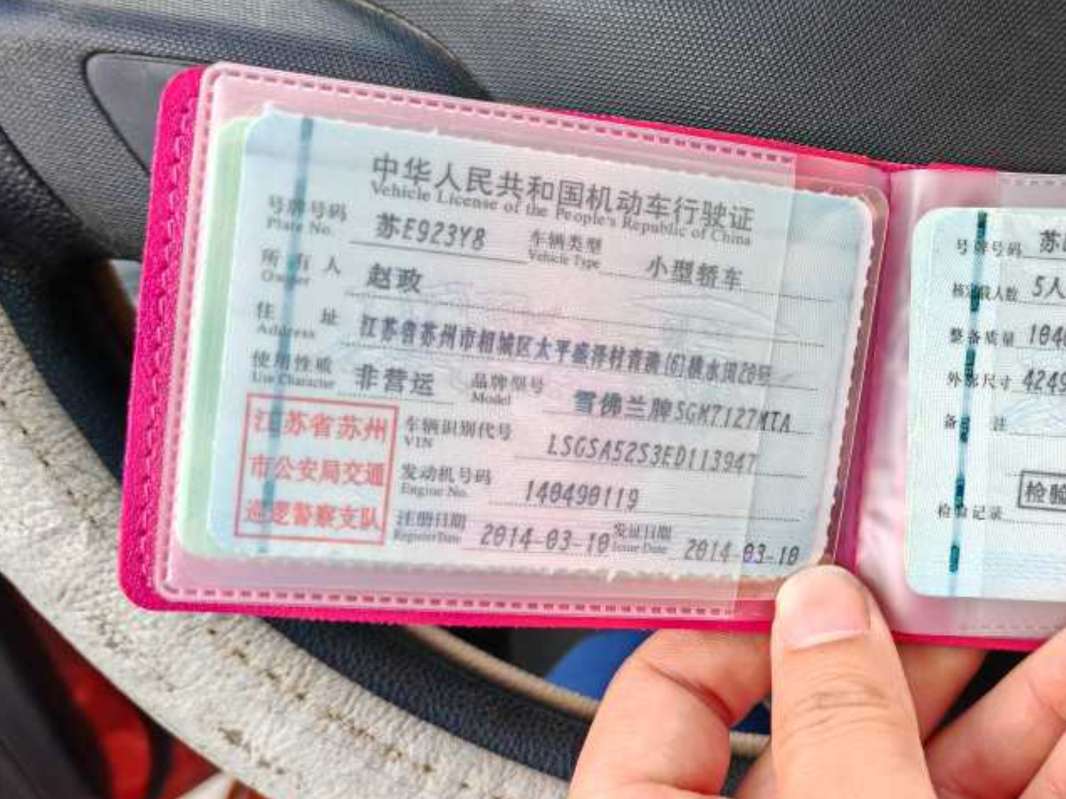 中华人民共和国机动车行驶证
Vehicle License of the People's Republic of China
号牌号码 苏E923Y8 车辆类型 小型轿车
Plate No. Vehicle Type
所有人 赵政
Owner
住址 江苏省苏州市相城区太平盛泽村青漪(6)横水田20号
Address
使用性质 非营运 品牌型号 雪佛兰牌SGM7127MTA
Use Character Model
江苏省苏州
市公安局交通
巡逻警察支队
车辆识别代号 LSGSA52S3ED113947
VIN
发动机号码 140490119
Engine No.
注册日期 2014-03-10 发证日期 2014-03-10
Register Date Issue Date
号牌号码 苏
核定载人数 5人
整备质量 104
外廓尺寸 4249
备注
检验
检验记录